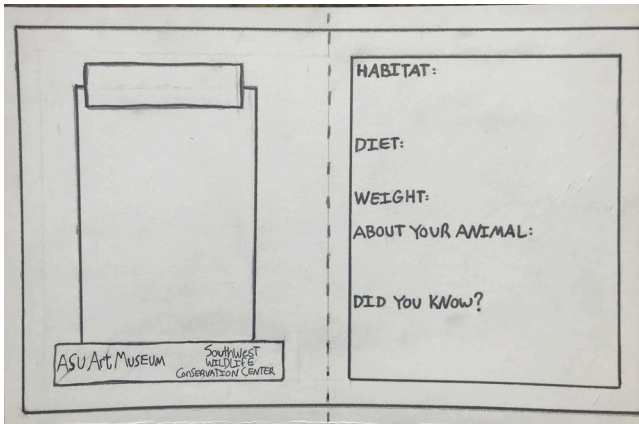 ASU Art MUSEUM
SouthWest
WILDLIFE
ConSERVATION CENTER
HABITAT:
DIET:
WEIGHT:
ABOUT YOUR ANIMAL:
DID YOU KNOW?